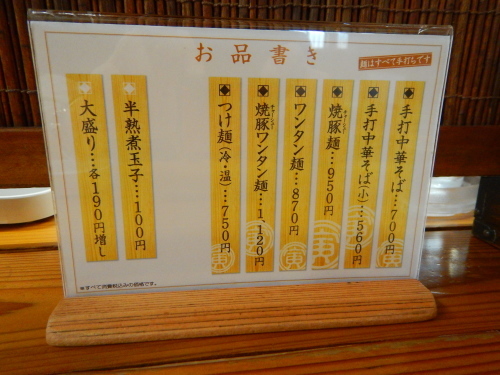 お品書き
麺はすべて手打ちです
手打中華そば…700円
手打中華そば(小)…560円
焼豚麺…950円
ワンタン麺…870円
焼豚ワンタン麺…1,120円
つけ麺(冷・温)…750円
半熟煮玉子…100円
大盛り…各190円増し
※すべて消費税込みの価格です。